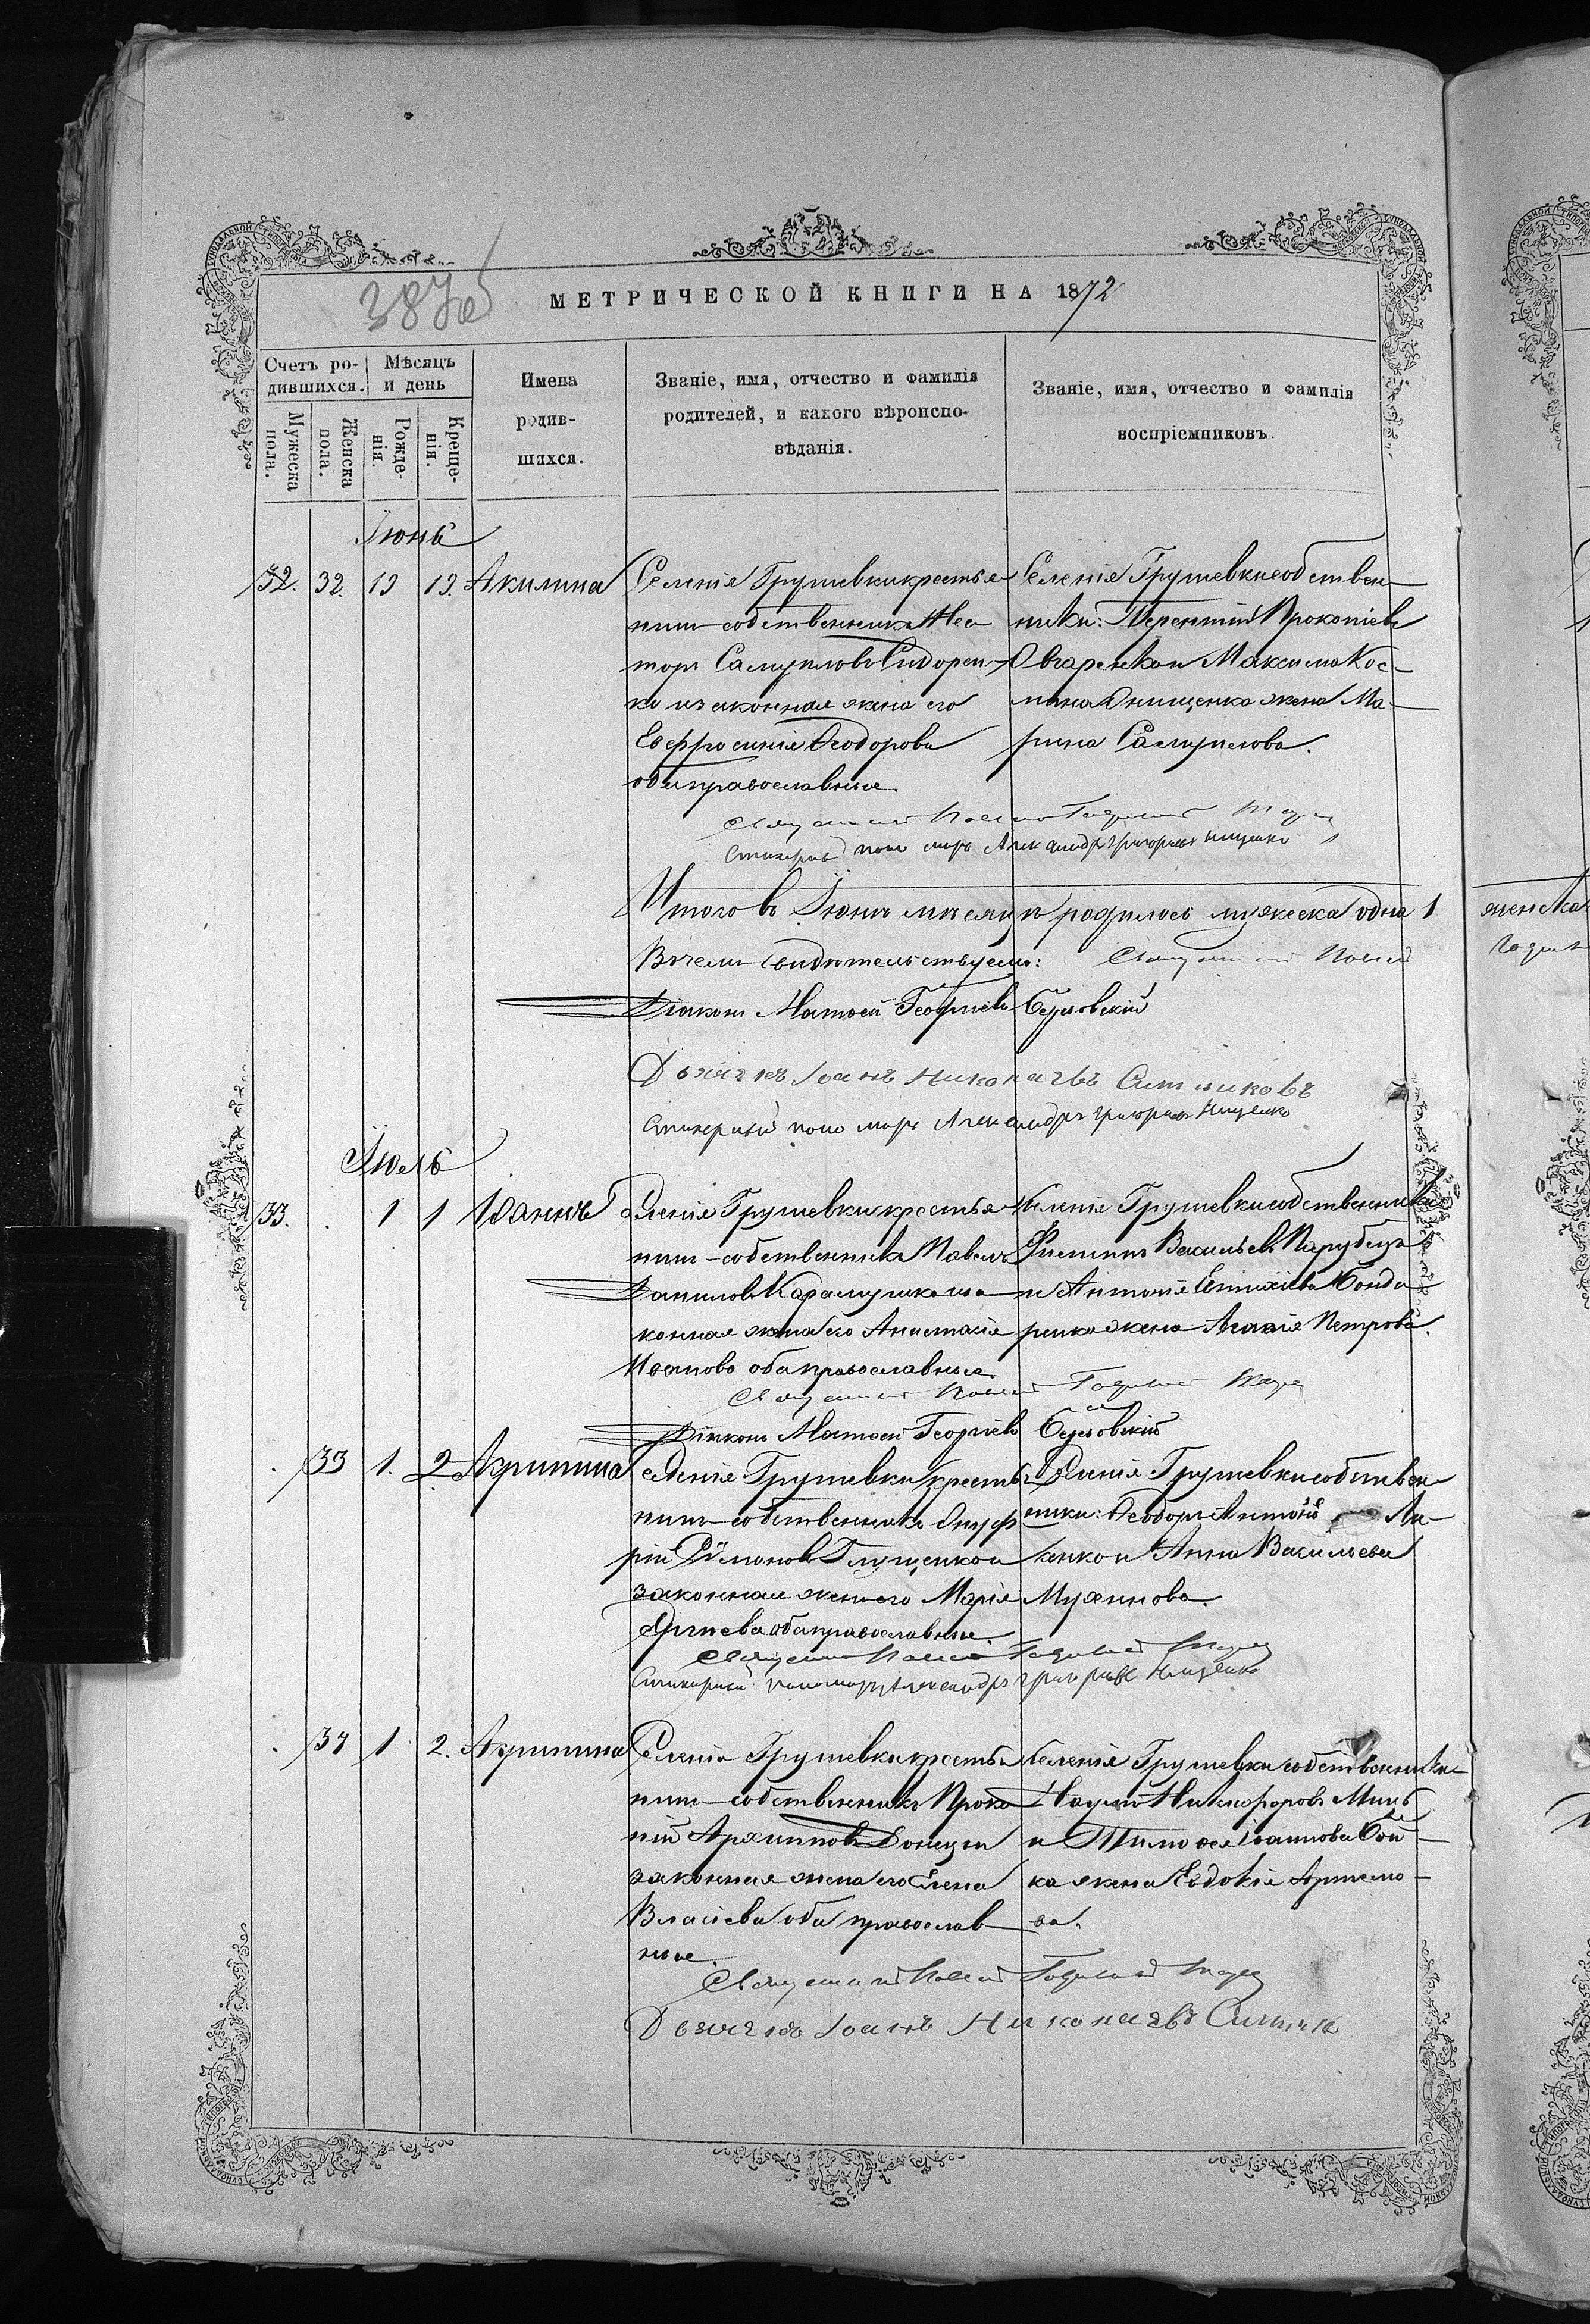 МЕТРИЧЕСКОЙ КНИГИ НА 1872
Счетъ ро-
дившихся.
Мѣсяцъ
и день
Мужеска
пола.
Женска
пола.
Рожде-
нія.
Креще-
нія.
Имена
родив-
шихся.
Званіе, имя, отчество и фамилія
родителей, и какого вѣроиспо-
вѣданія.
Званіе, имя, отчество и фамилія
воспріемниковъ.
Іюнь
32. 32. 13 13. Акилина
Селенія Грушевки крестья-
нинъ-собственникъ Нес-
торъ Самуиловъ Сидорен-
ко и законная жена его
Евфросинія Ѳеодорова
оба православные.
Селенія Грушевки собствен-
ники: Терентій Прокопіевъ
Овчаренко и Максима Кос-
мина Онищенка жена Ма-
рина Самуилова.
Священникъ
Стихарный пономарь Александръ Григорьевъ Нищенко
Итого въ Іюнѣ мѣсяцѣ родилось мужеска одна 1
Въ чемъ свидѣтельствуемъ: Священникъ
Діаконъ Матѳей Георгіевъ
Дьячекъ Іоанъ Николаевъ Ситниковъ
Стихарный пономарь Александръ Григорьевъ Нищенко
Іюль
33. . 1 1 Іоаннъ
Селенія Грушевки крестья-
нинъ-собственникъ Павелъ
Даниловъ Карамушка и за-
конная жена его Анастасія
Иванова оба православные.
Селенія Грушевки собственники
Филиппъ Васильевъ Парубецъ
и Антонія Бонда-
ренка жена Петрова.
Священникъ
Діаконъ Матѳей Георгіевъ
. 33 1. 2 Агрипина
Селенія Грушевки крестья-
нинъ-собственникъ Онуф-
рій Глущенко и
законная жена его Марія
оба православные.
Селенія Грушевки собствен-
ники: Ѳеодоръ Антоніевъ Ли-
и Анна Васильева
Мухинова.
Священникъ
Стихарный пономарь Александръ Григорьевъ Нищенко
. 34 1 2. Агрипина
Селенія Грушевки крестья-
нинъ-собственникъ Проко-
пій Архиповъ Донецъ и
законная жена его Елена
Власіева оба православ-
ные.
Селенія Грушевки собственники
Наумъ Никифоровъ
и Тимоѳея Іоаннова Бой-
ка жена Евдокія Артемо-
ва.
Священникъ
Дьячекъ Іоанъ Николаевъ
женска